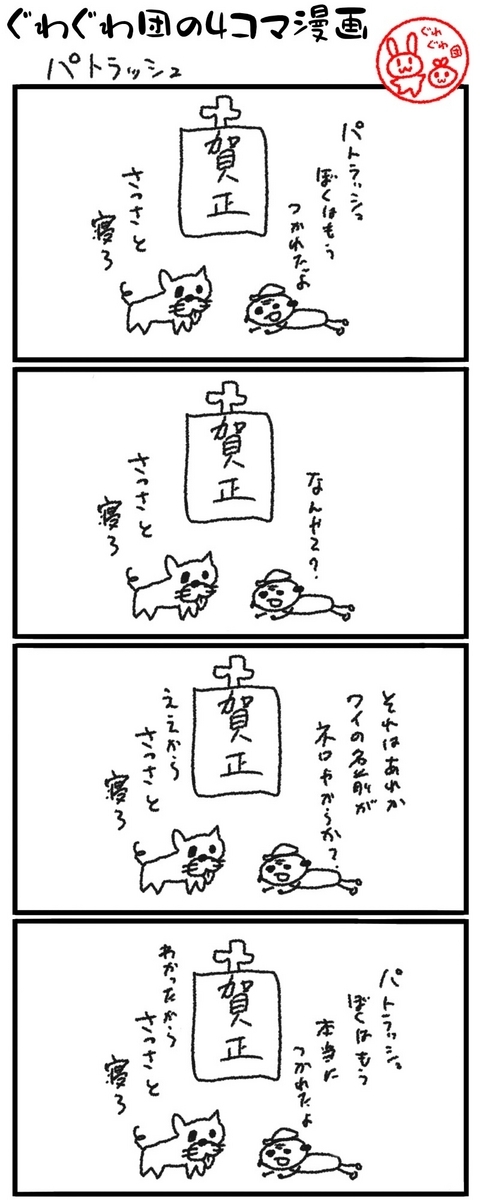 ぐわぐわ団の4コマ漫画
ぐわ
ぐわ
団
パトラッシュ
パトラッシュ
ぼくはもう
つかれたよ
賀正
さっさと
寝ろ
なんやて?
賀正
さっさと
寝ろ
それはあれか
ワイの名前が
ネロやからか?
賀正
ええから
さっさと
寝ろ
パトラッシュ
ぼくはもう
本当に
つかれたよ
賀正
わかったから
さっさと
寝ろ